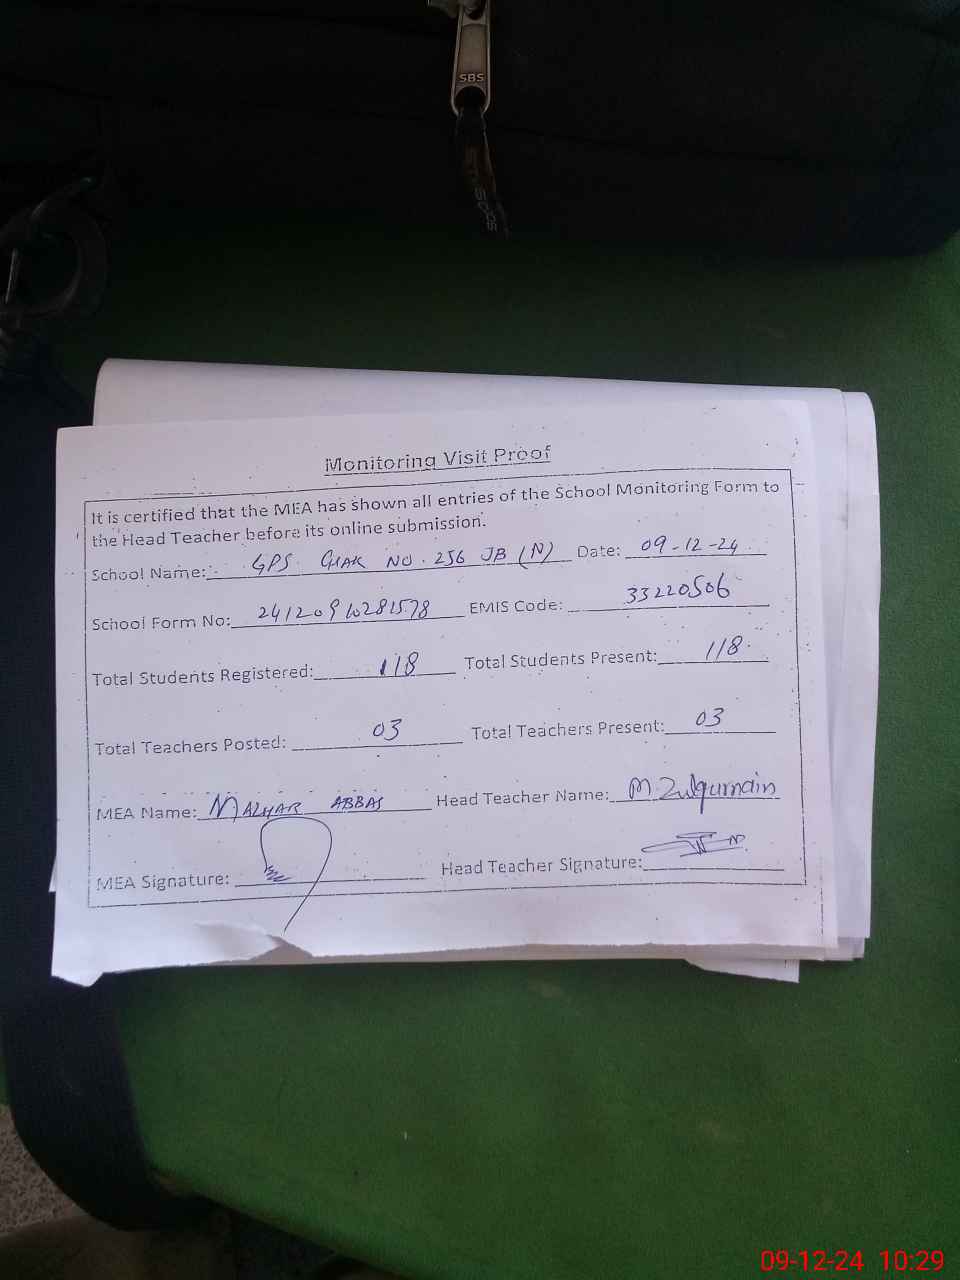 SBS
SBS
Monitoring Visit Proof
It is certified that the MEA has shown all entries of the School Monitoring Form to
the Head Teacher before its online submission.
School Name: GPS. CHAK NO. 256 JB (N) Date: 09-12-24
School Form No: EMIS Code: 33220506
Total Students Registered: 118 Total Students Present: 118
Total Teachers Posted: 03 Total Teachers Present: 03
MEA Name: ABBAS Head Teacher Name: M. Zulqurnain
MEA Signature: Head Teacher Signature:
09-12-24 10:29